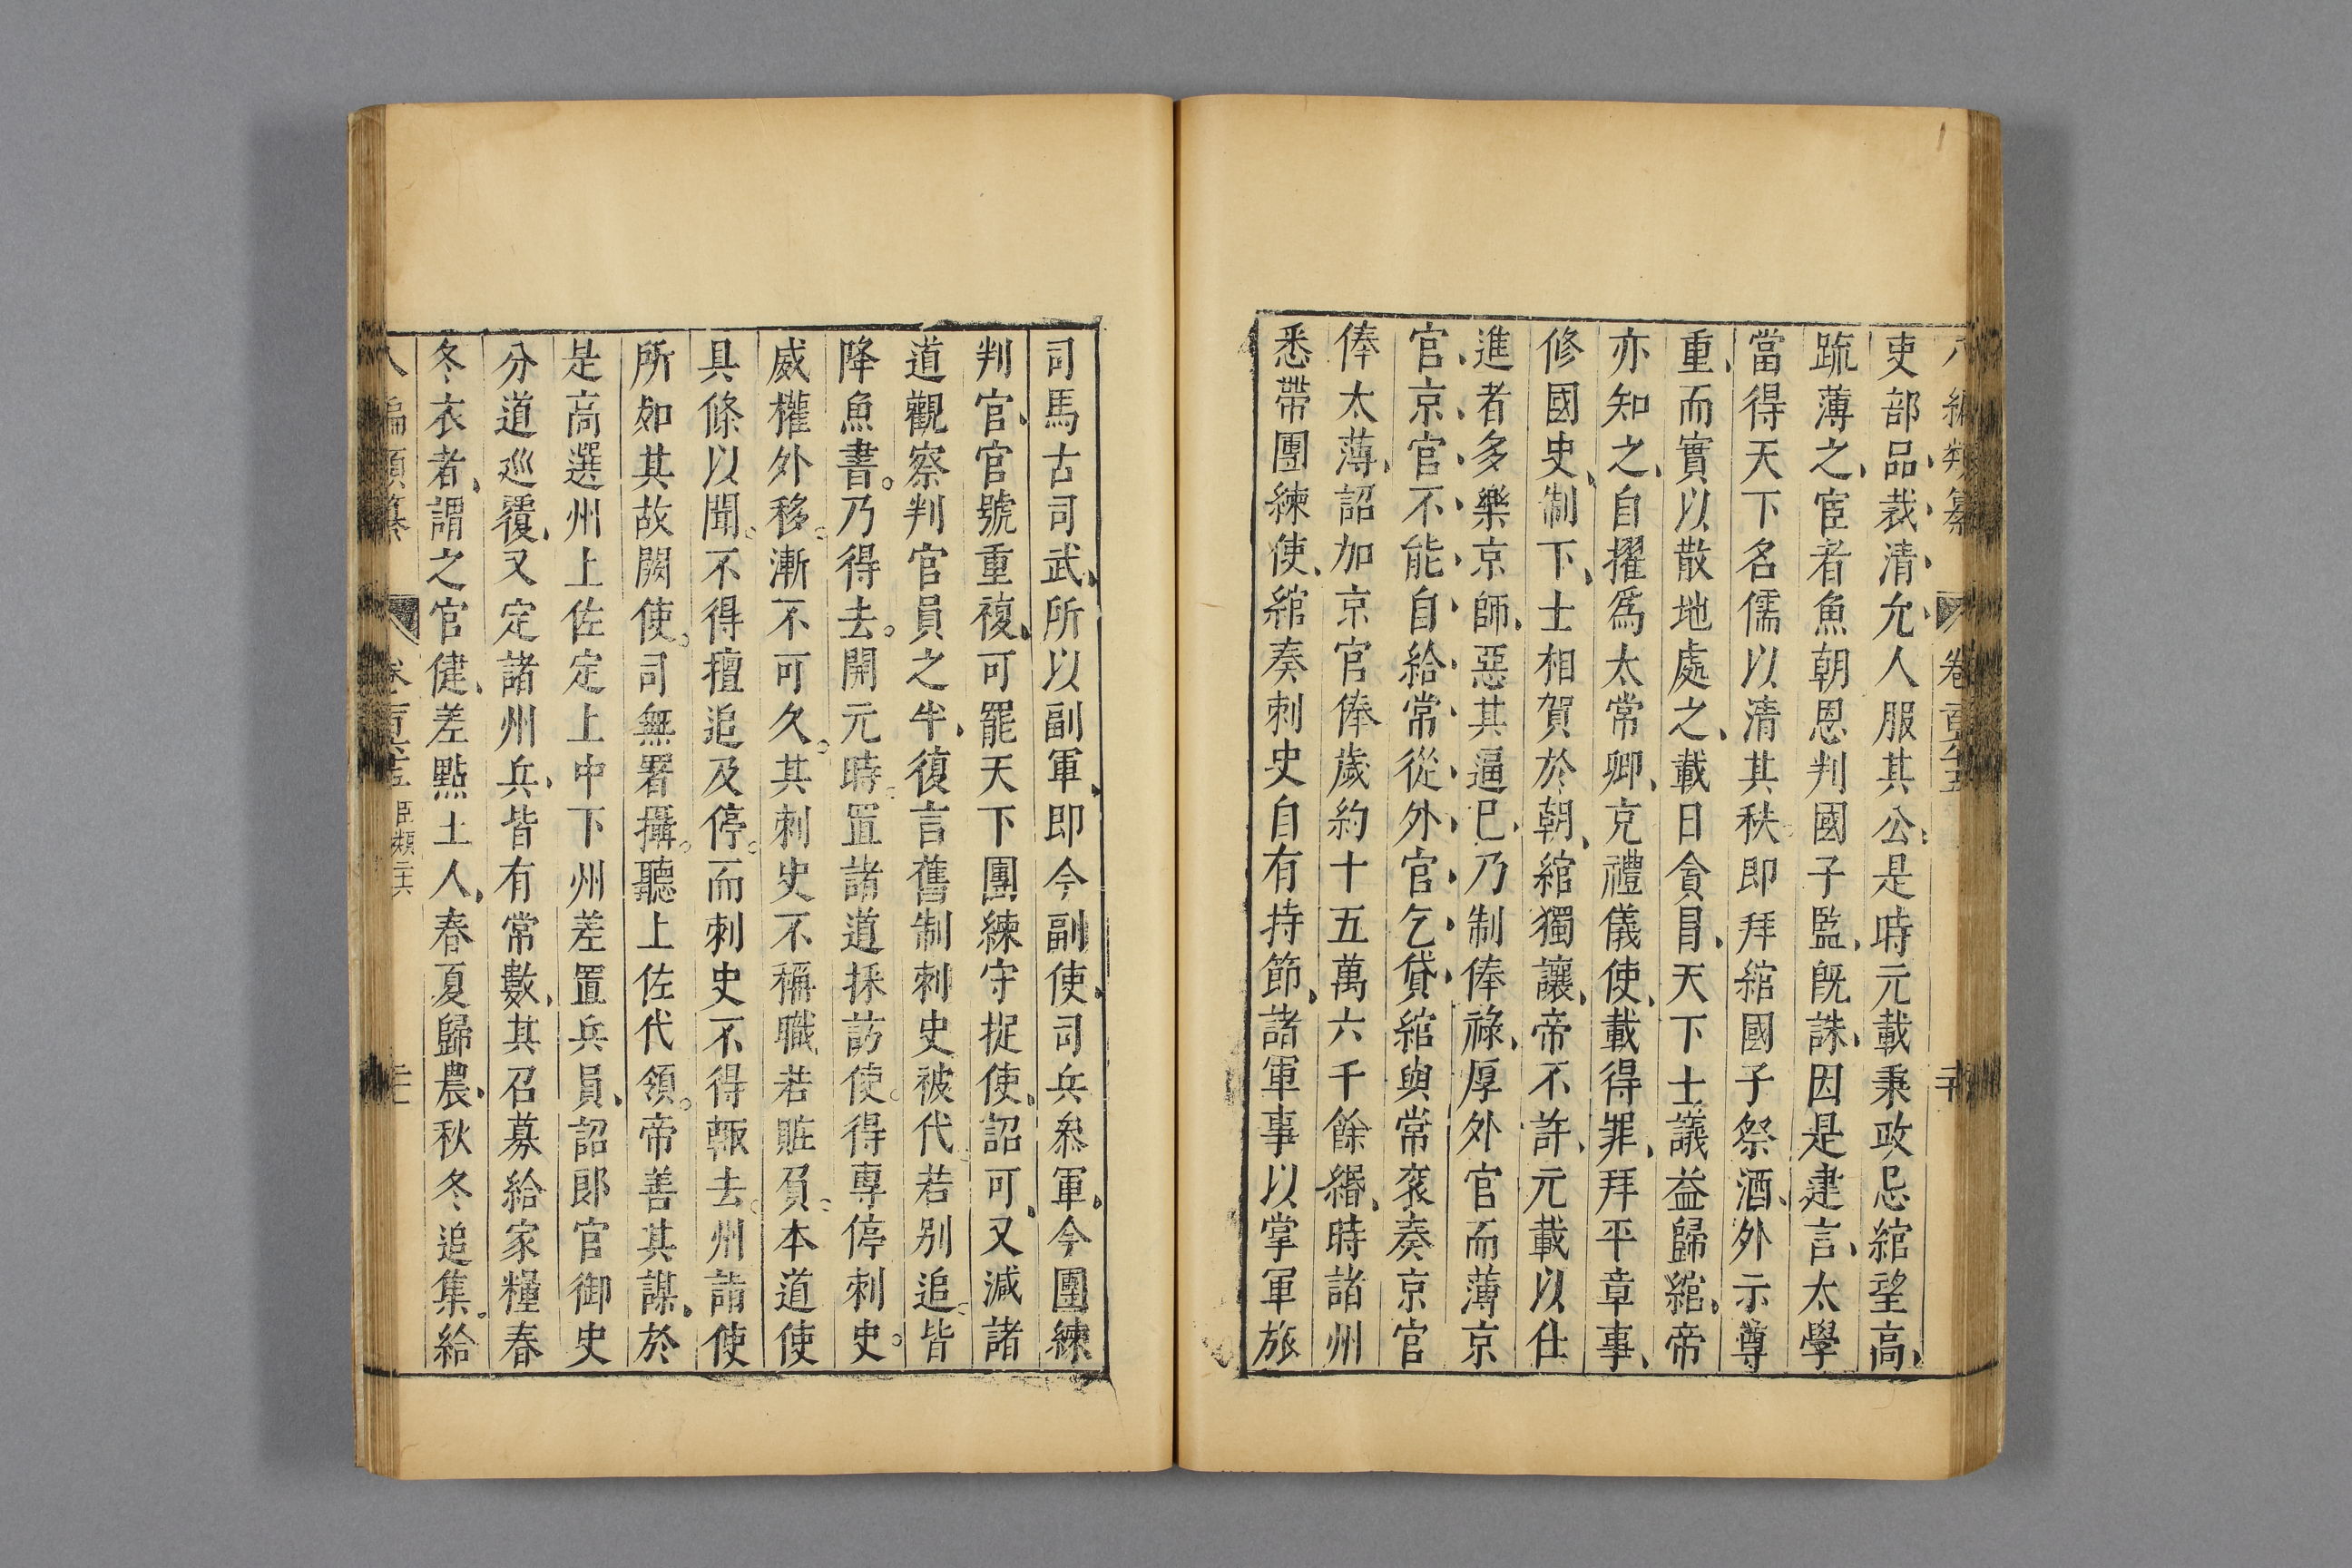 吏部品裁清允人服其公是時元載秉政忌綰望高
䟽薄之宦者魚朝恩判國子監既誅因是建言太學
當得天下名儒以清其秩即拜綰國子祭酒外示尊
重而實以散地處之載日貪冒天下士議益歸綰帝
亦知之自擢爲太常卿充禮儀使載得罪拜平章事
修國史制下士相賀於朝綰獨讓帝不許元載以仕
進者多樂京師惡其逼巳乃制俸祿厚外官而薄京
官京官不能自給常從外官乞貸綰與常衮奏京官
俸太薄詔加京官俸歲約十五萬六千餘緡時諸州
悉帶團練使綰奏刺史自有持節諸軍事以掌軍旅
司馬古司武所以副軍即今副使司兵叅軍今團練
判官官號重複可罷天下團練守捉使詔可又減諸
道觀察判官員之半復言舊制刺史被代若别追皆
降魚書乃得去開元時置諸道採訪使得專停刺史
威權外移漸不可久其刺史不稱職若贓負本道使
具條以聞不得擅追及停而刺史不得輙去州詣使
所如其故闕使司無署攝聽上佐代領帝善其謀於
是高選州上佐定上中下州差置兵員詔郎官御史
分道巡覆又定諸州兵皆有常數其召募給家糧春
冬衣者謂之官健差點土人春夏歸農秋冬追集給